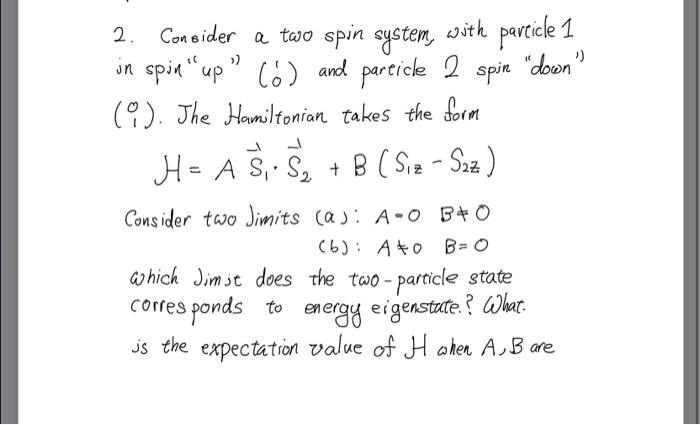 2. Consider a two spin system, with particle 1
in spin "up" (1 0) and particle 2 spin "down"
(0 1). The Hamiltonian takes the form
H = A S⃗₁·S⃗₂ + B (S₁z - S₂z)
Consider two limits (a): A=0 B≠0
(b): A≠0 B=0
which limit does the two-particle state
corresponds to energy eigenstate.? What.
is the expectation value of H when A, B are